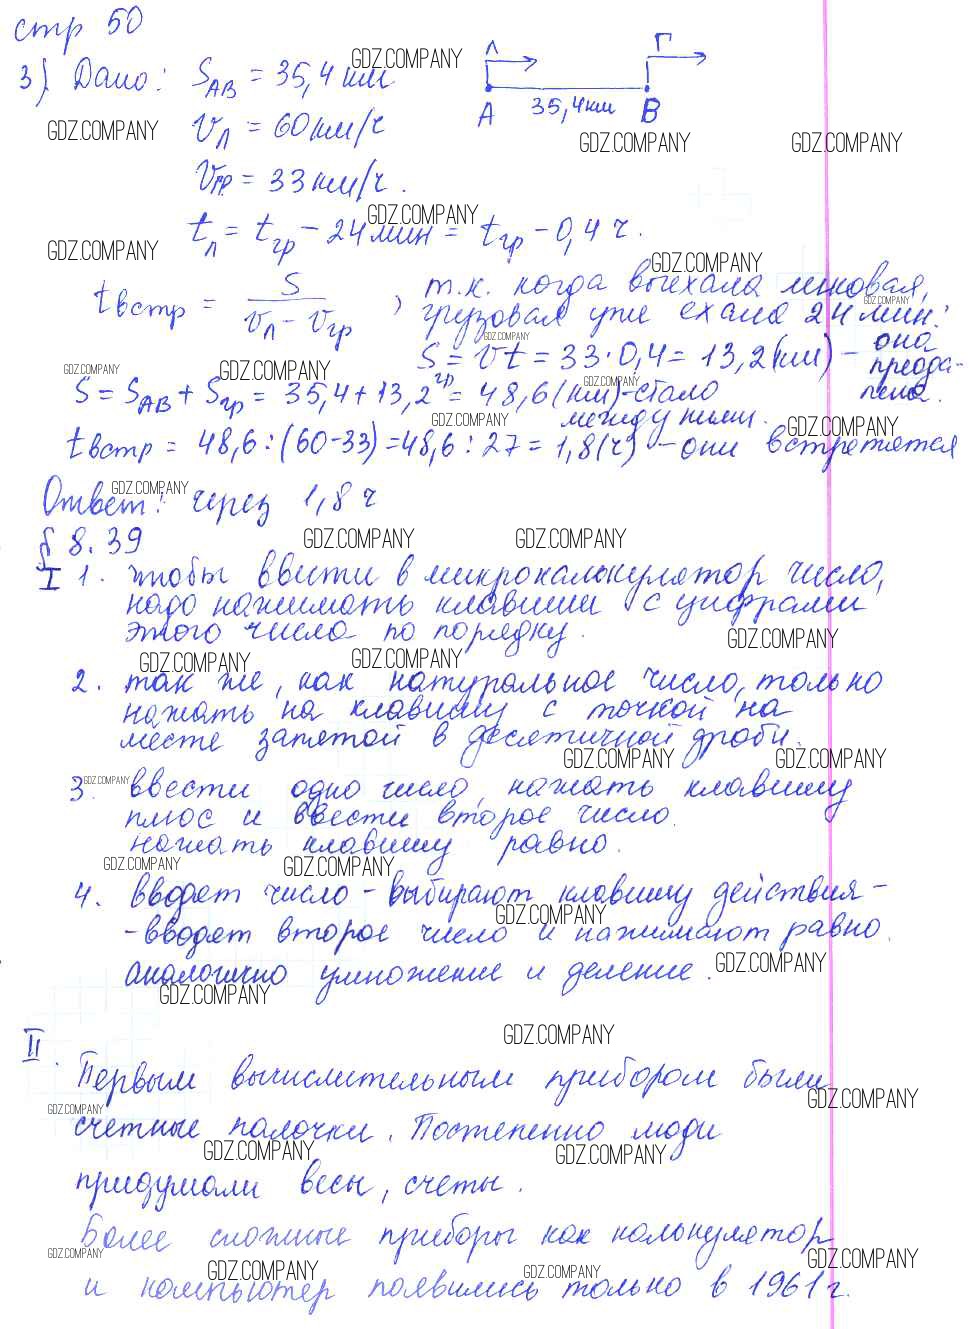 стр 50
3) Дано: S_AB = 35,4 км
Л Г
A 35,4 км B
V_Л = 60 км/ч
V_гр = 33 км/ч.
t_л = t_гр - 24 мин = t_гр - 0,4 ч.
t встр = S / (V_л - V_гр), т.к. когда выехала легковая,
грузовая уже ехала 24 мин.
S_гр = Vt = 33 · 0,4 = 13,2 (км) - она преодолела.
S = S_AB + S_гр = 35,4 + 13,2 = 48,6 (км) - стало между ними.
t встр = 48,6 : (60-33) = 48,6 : 27 = 1,8 (ч) - они встретятся
Ответ: через 1,8 ч
§ 8.39
I 1. чтобы ввести в микрокалькулятор число,
надо нажимать клавиши с цифрами
этого числа по порядку.
2. так же, как натуральное число, только
нажать на клавишу с точкой на
месте запятой в десятичной дроби.
3. ввести одно число, нажать клавишу
плюс и ввести второе число.
нажать клавишу равно.
4. вводят число - выбирают клавишу действия -
- вводят второе число и нажимают равно.
аналогично умножение и деление.
II.
Первым вычислительным прибором были
счетные палочки. Постепенно люди
придумали весы, счеты.
Более сложные приборы как калькулятор
и компьютер появились только в 1961 г.
GDZ.COMPANY